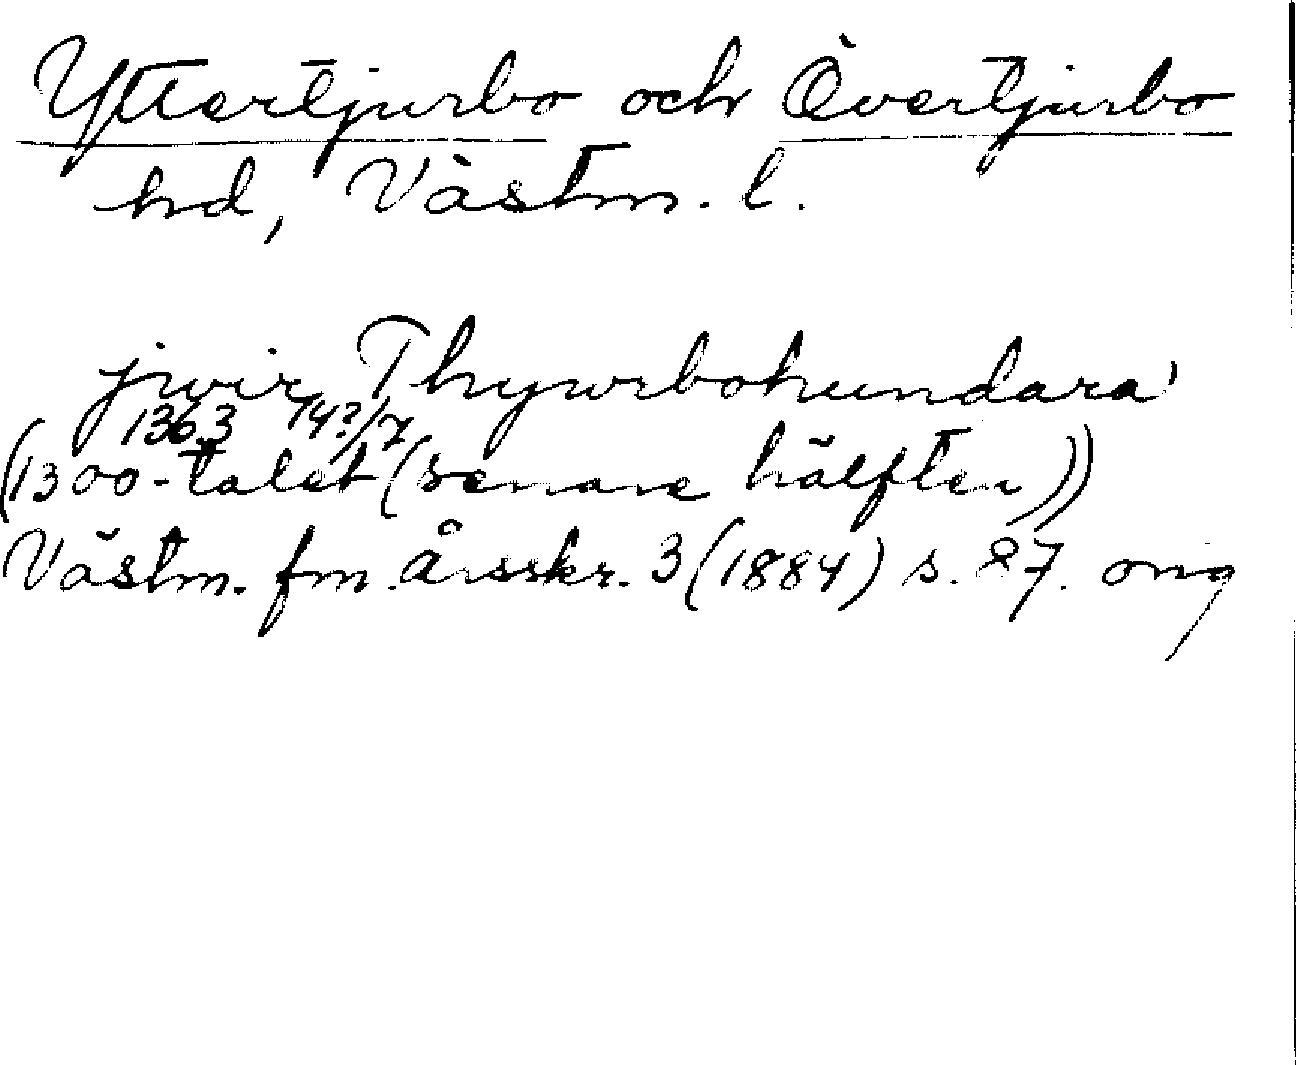 Yttertjurbo och Övertjurbo
hd, Västm. l.
jwir Thywrbohundara
1363 14?/7
(1300-talet (senare hälften))
Västm. fm. årsskr. 3 (1884) s. 27. orig